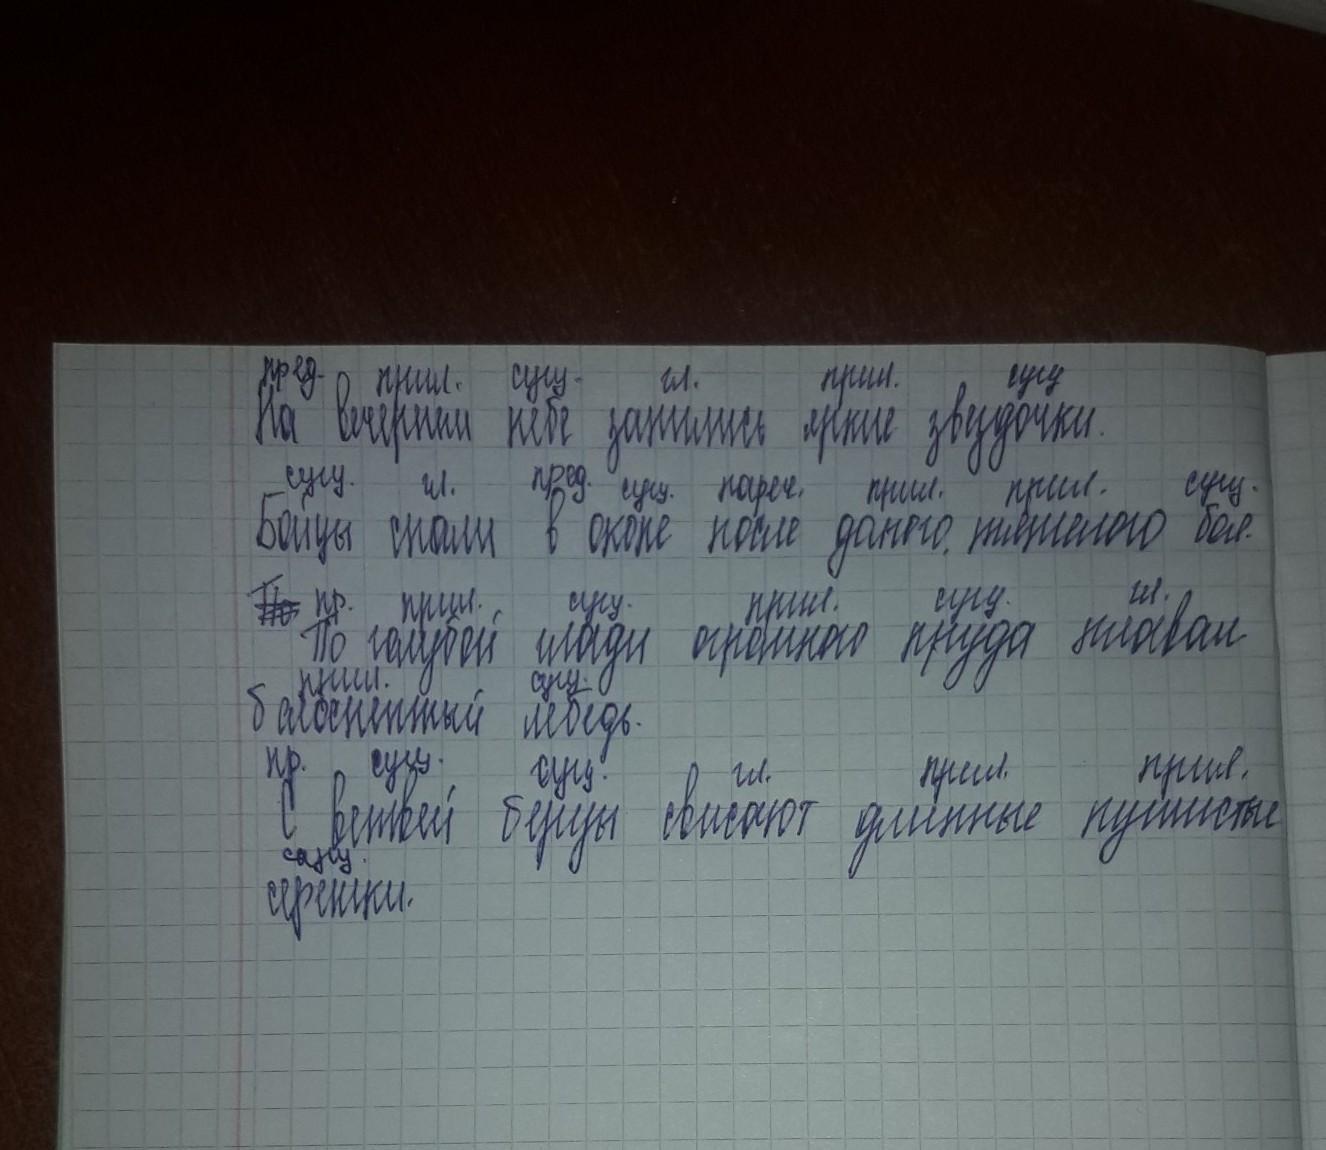 пред. прил. сущ. гл. прил. сущ
На вечернем небе зажились яркие звездочки.
сущ. гл. пред. сущ. нареч. прил. прил. сущ.
Бойцы спали в окопе после долгого, тяжелого боя.
пр. прил. сущ. прил. сущ. гл.
По голубой глади огромного пруда плавал
прил. сущ.
белоснежный лебедь.
пр. сущ. сущ. гл. прил. прил.
С ветвей березы свисают длинные пушистые
сущ.
сережки.